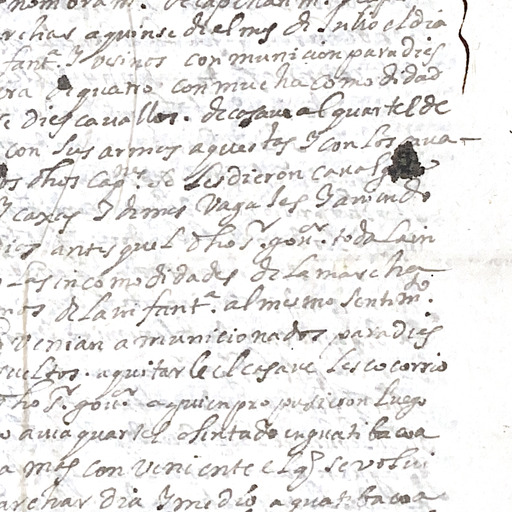 nombram.to de capitan
archas a quinse del mes de Julio el dia
fant.a y vesinos con municion para dies
era de quatro con mucha comodidad
se dies cavallos. de casave al quartel de
con sus armas a questas y con los
os dhos cap.es se les dieron cavalg
y caxas y demas vagajes y
dies antes quel dho s.r gov.or toda la in
las incomodidades de la marcha
mos de la infant.a al mesmo sentim.to
venian amunicionados para dies
sueltos. a quitarle el casave les cocorrio
dho s.r gov.or a quien propusieron luego
o avia quartel asentado en guatibacoa
a mas conveniente el q se volvi
archar dia y medio a guatibacoa